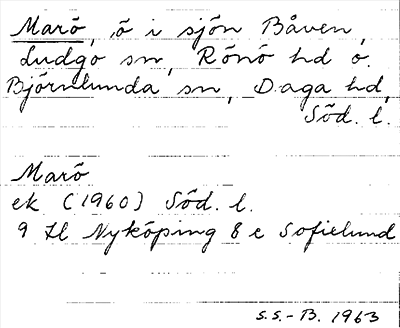 Marö, ö i sjön Båven,
Ludgo sn, Rönö hd o.
Björnlunda sn, Daga hd,
Söd. l.
Marö
ek (1960) Söd. l.
9 H Nyköping 8 e Sofielund
S.S.-B. 1963